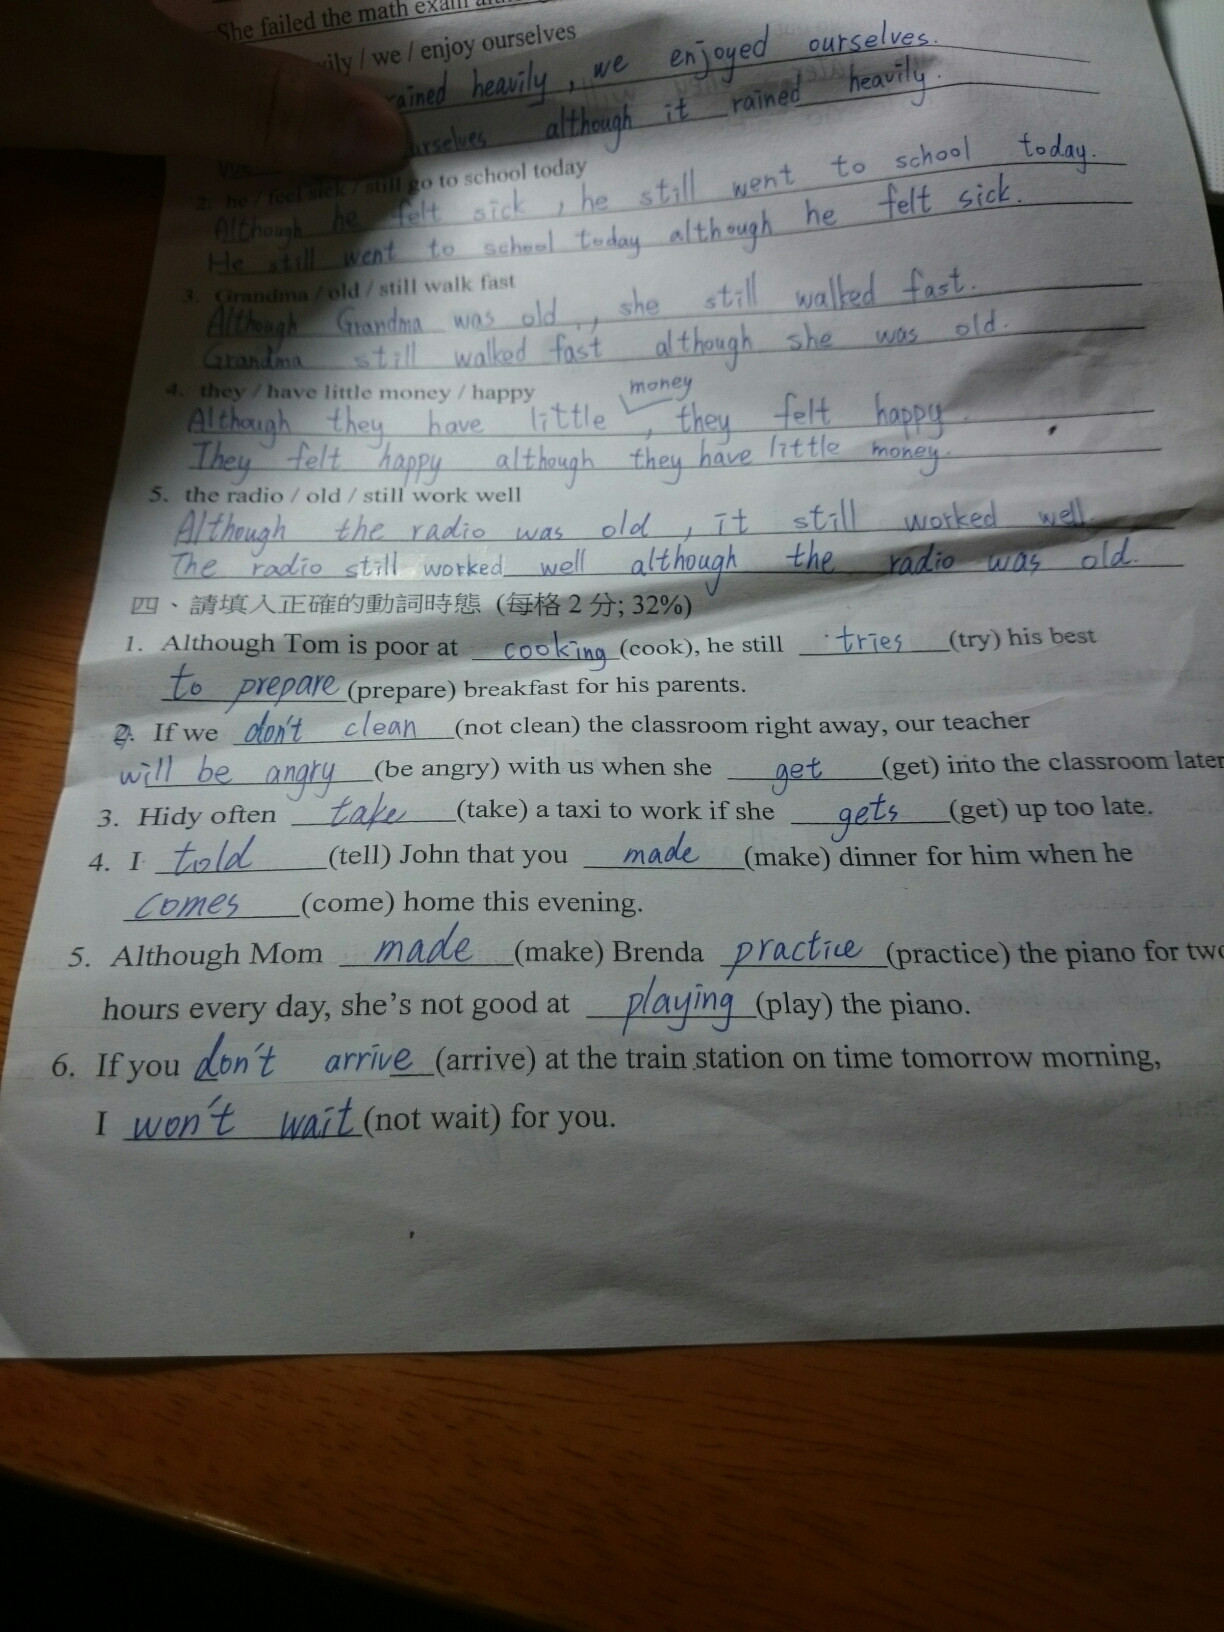 She failed the math exam
/ we / enjoy ourselves
rained heavily, we enjoyed ourselves.
although it rained heavily.
2. he / feel sick / still go to school today
Although he felt sick, he still went to school today.
He still went to school today although he felt sick.
3. Grandma / old / still walk fast
Although Grandma was old, she still walked fast.
Grandma still walked fast although she was old.
4. they / have little money / happy
money
Although they have little, they felt happy.
They felt happy although they have little money.
5. the radio / old / still work well
Although the radio was old, it still worked well.
The radio still worked well although the radio was old.
四、請填入正確的動詞時態 (每格 2 分; 32%)
1. Although Tom is poor at cooking (cook), he still tries (try) his best
to prepare (prepare) breakfast for his parents.
2. If we don't clean (not clean) the classroom right away, our teacher
will be angry (be angry) with us when she get (get) into the classroom later
3. Hidy often take (take) a taxi to work if she gets (get) up too late.
4. I told (tell) John that you made (make) dinner for him when he
comes (come) home this evening.
5. Although Mom made (make) Brenda practice (practice) the piano for
hours every day, she's not good at playing (play) the piano.
6. If you don't arrive (arrive) at the train station on time tomorrow morning,
I won't wait (not wait) for you.